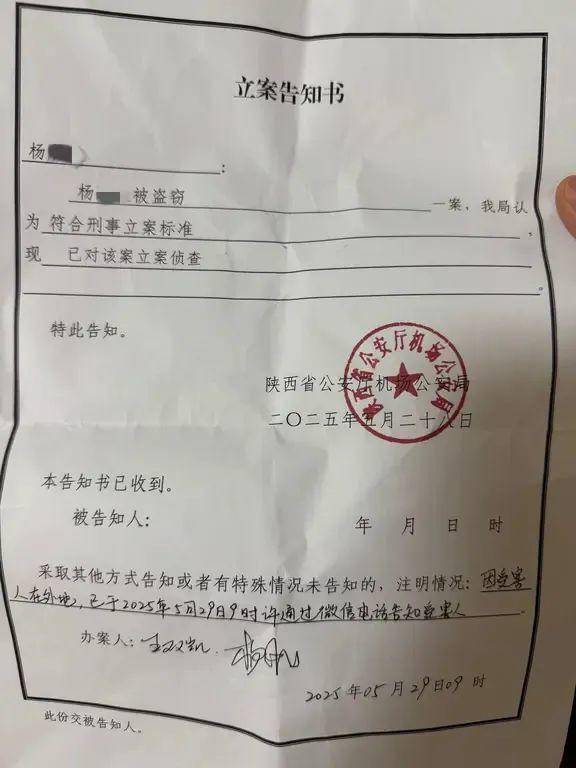 立案告知书
杨
:
杨 被盗窃 一案,我局认
为 符合刑事立案标准 ,
现 已对该案立案侦查
特此告知。
陕西省公安厅机场公安局
二〇二五年五月二十八日
陕西省公安厅机场公安局
本告知书已收到。
被告知人:
年 月 日 时
采取其他方式告知或者有特殊情况未告知的,注明情况:因受害
人在外地,已于2025年5月29日9时许通过微信电话告知受害人
办案人:
2025年05月29日09时
此份交被告知人。